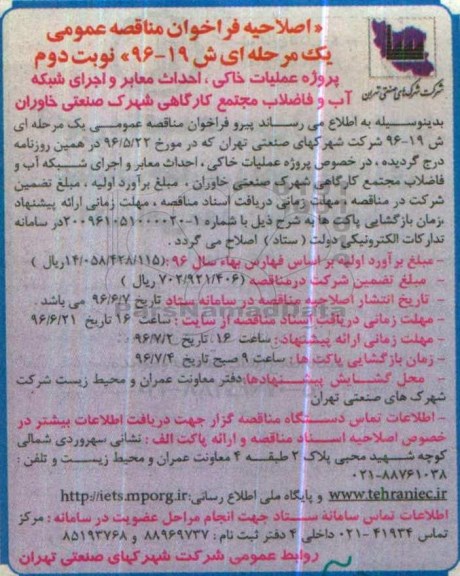 «اصلاحیه فراخوان مناقصه عمومی
یک مرحله ای ش ۱۹-۹۶» نوبت دوم
شرکت شهرک‌های صنعتی تهران
پروژه عملیات خاکی ، احداث معابر و اجرای شبکه
آب و فاضلاب مجتمع کارگاهی شهرک صنعتی خاوران
بدینوسیله به اطلاع می رساند پیرو فراخوان مناقصه عمومی یک مرحله ای
ش ۱۹-۹۶ شرکت شهرکهای صنعتی تهران که در مورخ ۹۶/۵/۲۲ در همین روزنامه
درج گردیده ، در خصوص پروژه عملیات خاکی ، احداث معابر و اجرای شبکه آب و
فاضلاب مجتمع کارگاهی شهرک صنعتی خاوران ، مبلغ برآورد اولیه ، مبلغ تضمین
شرکت در مناقصه ، مهلت زمانی دریافت اسناد مناقصه ، مهلت زمانی ارائه پیشنهاد
،زمان بازگشایی پاکت ها به شرح ذیل با شماره ۱-۲۰۰۹۶۱۰۵۱۰۰۰۰۲۰در سامانه
تدارکات الکترونیکی دولت ( ستاد ) اصلاح می گردد .
- مبلغ برآورد اولیه بر اساس فهارس بهاء سال ۹۶ :(۱۴/۰۵۸/۴۲۸/۱۱۵ریال )
- مبلغ تضمین شرکت درمناقصه (۷۰۲/۹۲۱/۴۰۶ ریال )
- تاریخ انتشار اصلاحیه مناقصه در سامانه ستاد تاریخ ۹۶/۶/۷ می باشد .
- مهلت زمانی دریافت اسناد مناقصه از سایت : ساعت ۱۶ تاریخ ۹۶/۶/۲۱
- مهلت زمانی ارائه پیشنهاد: ساعت ۱۶ تاریخ ۹۶/۷/۲
- زمان بازگشایی پاکت ها : ساعت ۹ صبح تاریخ ۹۶/۷/۴
- محل گشایش پیشنهادها:دفتر معاونت عمران و محیط زیست شرکت
شهرک های صنعتی تهران
- اطلاعات تماس دستگاه مناقصه گزار جهت دریافت اطلاعات بیشتر در
خصوص اصلاحیه اسناد مناقصه و ارائه پاکت الف : نشانی سهروردی شمالی
کوچه شهید محبی پلاک ۲ طبقه ۴ معاونت عمران و محیط زیست و تلفن :
۰۲۱-۸۸۷۶۱۰۳۸
www.tehraniec.ir و پایگاه ملی اطلاع رسانی:http://iets.mporg.ir
اطلاعات تماس سامانه ستاد جهت انجام مراحل عضویت در سامانه : مرکز
تماس ۴۱۹۳۴-۰۲۱ داخلی ۴ دفتر ثبت نام : ۸۸۹۶۹۷۳۷ و ۸۵۱۹۳۷۶۸
روابط عمومی شرکت شهرکهای صنعتی تهران